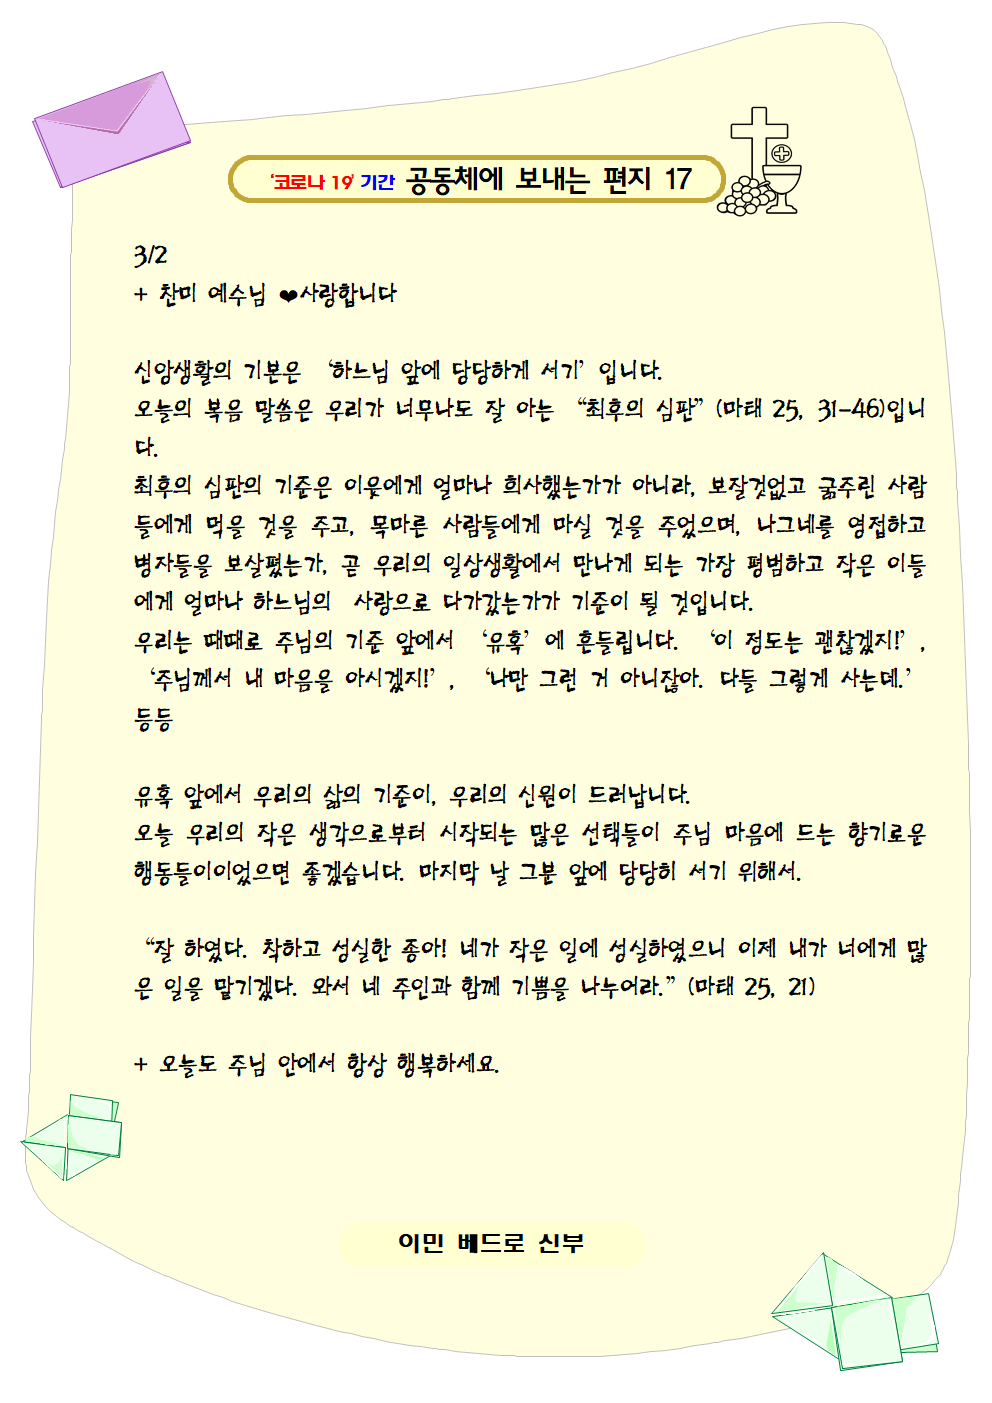 ‘코로나 19’ 기간 공동체에 보내는 편지 17
3/2
+ 찬미 예수님 ❤사랑합니다
신앙생활의 기본은 ‘하느님 앞에 당당하게 서기’ 입니다.
오늘의 복음 말씀은 우리가 너무나도 잘 아는 “최후의 심판” (마태 25, 31-46)입니
다.
최후의 심판의 기준은 이웃에게 얼마나 희사했는가가 아니라, 보잘것없고 굶주린 사람
들에게 먹을 것을 주고, 목마른 사람들에게 마실 것을 주었으며, 나그네를 영접하고
병자들을 보살폈는가, 곧 우리의 일상생활에서 만나게 되는 가장 평범하고 작은 이들
에게 얼마나 하느님의 사랑으로 다가갔는가가 기준이 될 것입니다.
우리는 때때로 주님의 기준 앞에서 ‘유혹’ 에 흔들립니다. ‘이 정도는 괜찮겠지!’ ,
‘주님께서 내 마음을 아시겠지!’ , ‘나만 그런 거 아니잖아. 다들 그렇게 사는데.’
등등
유혹 앞에서 우리의 삶의 기준이, 우리의 신원이 드러납니다.
오늘 우리의 작은 생각으로부터 시작되는 많은 선택들이 주님 마음에 드는 향기로운
행동들이이었으면 좋겠습니다. 마지막 날 그분 앞에 당당히 서기 위해서.
“잘 하였다. 착하고 성실한 종아! 네가 작은 일에 성실하였으니 이제 내가 너에게 많
은 일을 맡기겠다. 와서 네 주인과 함께 기쁨을 나누어라.” (마태 25, 21)
+ 오늘도 주님 안에서 항상 행복하세요.
이민 베드로 신부